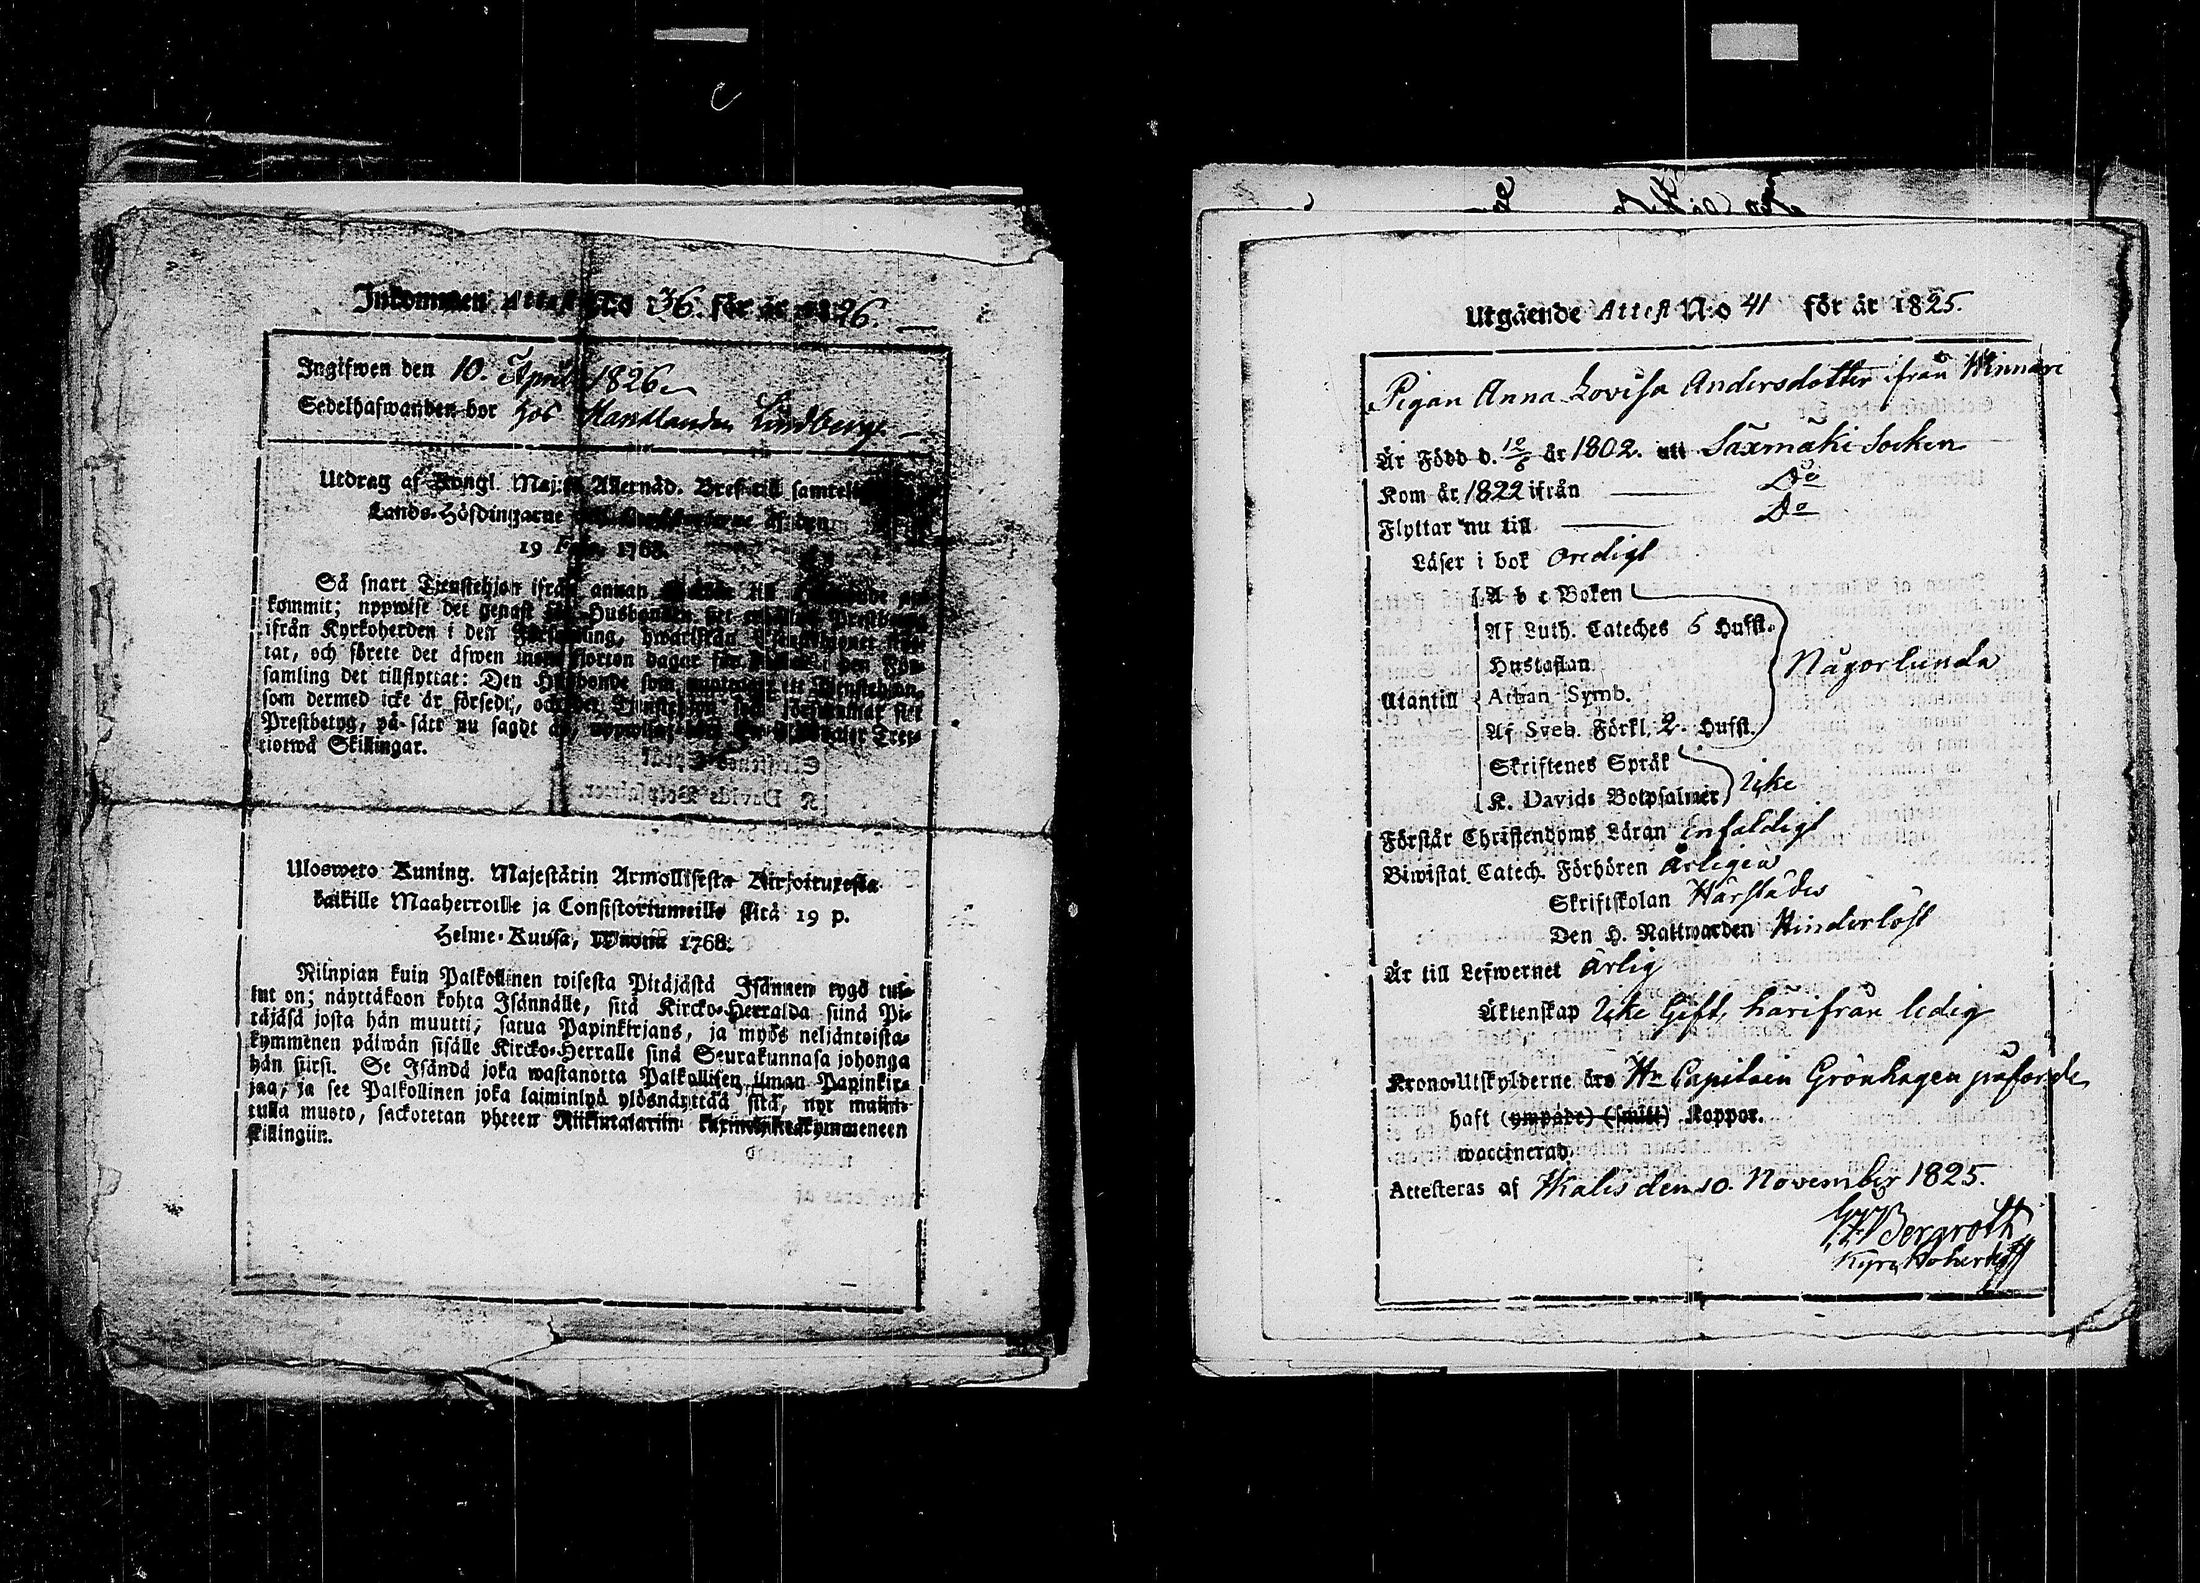 Inkommen Attest N:o 36. för år 1826.
Ingifwen den 10. April 1826.
Sedelhafwanden bor hos Handlanden Lindberg
Utdrag af Kongl. Maj:ts Allernåd. Bref till samtelige
Lands-Höfdingarne af den
19 Febr. 1768.
Så snart Tjenstehjon ifrån annan till
kommit; uppwise det genast Husbonden Prestbetyg
ifrån Kyrkoherden i den Församling, hwarifrån
tat, och förete det äfwen inom fjorton dagar för i den För-
samling det tillflyttat: Den Husbonde som ett Tjenstehjon,
som dermed icke är försedt, och det Tjenstehjon som försummar sitt
Prestbetyg, på sätt nu sagdt är, uppwisa, Tret-
tiotwå Skillingar.
Ulosweto Kuning. Majestätin Armollisesta Kirjoituxesta
kaikille Maaherroille ja Consistoriumeille sitä 19 p.
Helme-Kuusa, Wuona 1768.
Niinpian kuin Palkollinen toisesta Pitäjästä Isännen tygö tul-
lut on; näyttäköön kohta Isännälle, sitä Kircko-Herralda siinä Pi-
täjäsä josta hän muutti, satua Papinkirjans, ja myös neljäntoista-
kymmenen päiwän sisälle Kircko-Herralle siinä Seurakunnasa johonga
hän siirsi. Se Isändä joka wastanotta Palkollisen ilman Papinkir-
jaa, ja see Palkollinen joka laiminlyö ylösnäyttää sitä, nyt maini-
tulla muoto, sackotetan yhteen Riikintalariin kymmeneen
skillingiin.
Utgående Attest N:o 41 för år 1825.
Pigan Anna Lovisa Andersdotter ifrån Winnare
Är Född d. 12/6 år 1802. uti Säxmäki Socken
Kom år 1822 ifrån — Do
Flyttar nu till — Do
Läser i bok oredigt
A b c Boken
Af Luth. Cateches 5 Hufst.
Hustaflan Någorlunda
Utantill Athan. Symb.
Af Sveb. Förkl. 2. Hufst.
Skriftenes Språk
K. Davids Botpsalmer Icke
Förstår Christendoms Läran enfaldigt
Biwistat Catech. Förhören årligen
Skriftskolan Härstädes
Den H. Nattwarden Hinderlöst
Är till Lefwernet ärlig
Äktenskap Icke Gift, härifrån ledig
Krono-Utskylderne åro Hr Capitain Grönhagen påförde
haft (ympade) (smitt) Koppor.
waccinerad.
Attesteras af Kalis den 10. November 1825.
Bergroth
Kyrkoherde